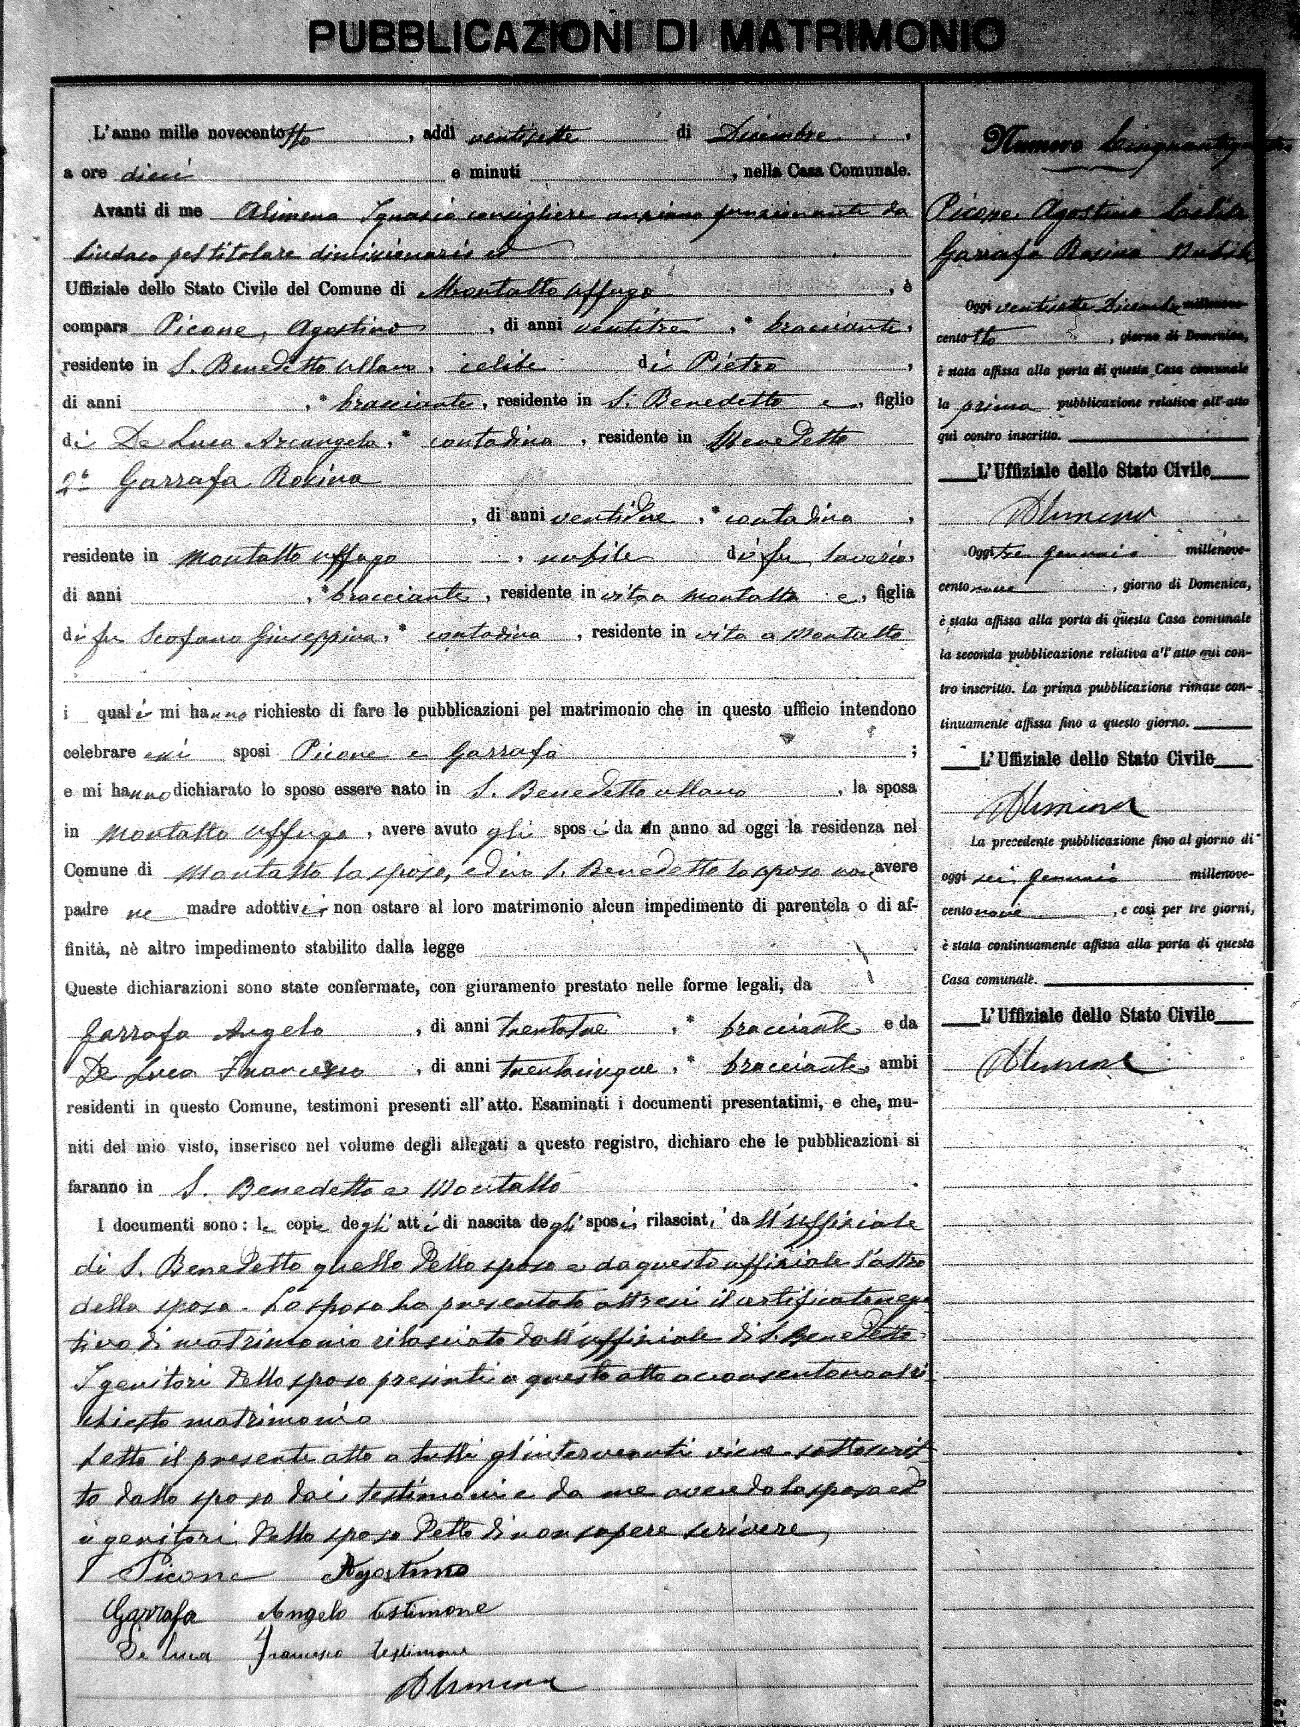 PUBBLICAZIONI DI MATRIMONIO
L'anno mille novecento otto, addì ventisette di Dicembre,
a ore dieci e minuti , nella Casa Comunale.
Avanti di me Alimena Ignazio consigliere anziano funzionante da
sindaco pel titolare dimissionario ed
Uffiziale dello Stato Civile del Comune di Montalto Uffugo, è
compars Picone Agostino, di anni ventitre, * bracciante,
residente in S. Benedetto Ullano, celibe di Pietro,
di anni , * bracciante, residente in S. Benedetto e, figlio
di De Luca Arcangela, * contadina, residente in S Benedetto
2° Garrafa Rosina
, di anni ventidue, * contadina,
residente in Montalto Uffugo, nubile di fu Saverio,
di anni , * bracciante, residente in vita a Montalto e, figlia
di fu Scofano Giuseppina, * contadina, residente in vita a Montalto
i quali mi hanno richiesto di fare le pubblicazioni pel matrimonio che in questo ufficio intendono
celebrare essi sposi Picone e Garrafa ;
e mi hanno dichiarato lo sposo essere nato in S. Benedetto Ullano, la sposa
in Montalto Uffugo, avere avuto gli sposi da un anno ad oggi la residenza nel
Comune di Montalto la sposa, ed in S. Benedetto lo sposo non avere
padre ne madre adottivi, non ostare al loro matrimonio alcun impedimento di parentela o di af-
finità, nè altro impedimento stabilito dalla legge
Queste dichiarazioni sono state confermate, con giuramento prestato nelle forme legali, da
Garrafa Angelo, di anni trentatre, * bracciante e da
De Luca Francesco, di anni trentacinque, * bracciante, ambi
residenti in questo Comune, testimoni presenti all'atto. Esaminati i documenti presentatimi, e che, mu-
niti del mio visto, inserisco nel volume degli allegati a questo registro, dichiaro che le pubblicazioni si
faranno in S. Benedetto e Montalto.
I documenti sono: le copie degli atti di nascita degli sposi, rilasciati, da ll'uffiziale
di S. Benedetto quello dello sposo e da questo uffiziale l'altro
della sposa. Lo sposo ha presentato altresì il certificato nega
tivo di matrimonio rilasciato dall'uffiziale di S. Benedetto
I genitori dello sposo presenti a questo atto acconsentono al ri
chiesto matrimonio
Letto il presente atto a tutti gl'intervenuti viene sottoscrit
to dallo sposo dai testimoni e da me avendo la sposa ed
i genitori dello sposo detto di non sapere scrivere,
Picone Agostino
Garrafa Angelo testimone
De Luca Francesco testimone
Alimena
Numero Cinquantaquattro
Picone Agostino Celibe
Garrafa Rosina Nubile
Oggi ventisette Dicembre millenove-
cento otto, giorno di Domenica,
è stata affissa alla porta di questa Casa comunale
la prima pubblicazione relativa all'atto
qui contro inscritto.
L'Uffiziale dello Stato Civile
Alimena
Oggi tre gennaio millenove-
cento nove, giorno di Domenica,
è stata affissa alla porta di questa Casa comunale
la seconda pubblicazione relativa all'atto qui con-
tro inscritto. La prima pubblicazione rimase con-
tinuamente affissa fino a questo giorno.
L'Uffiziale dello Stato Civile
Alimena
La precedente pubblicazione fino al giorno di
oggi sei gennaio millenove-
cento nove, e così per tre giorni,
è stata continuamente affissa alla porta di questa
Casa comunale.
L'Uffiziale dello Stato Civile
Alimena